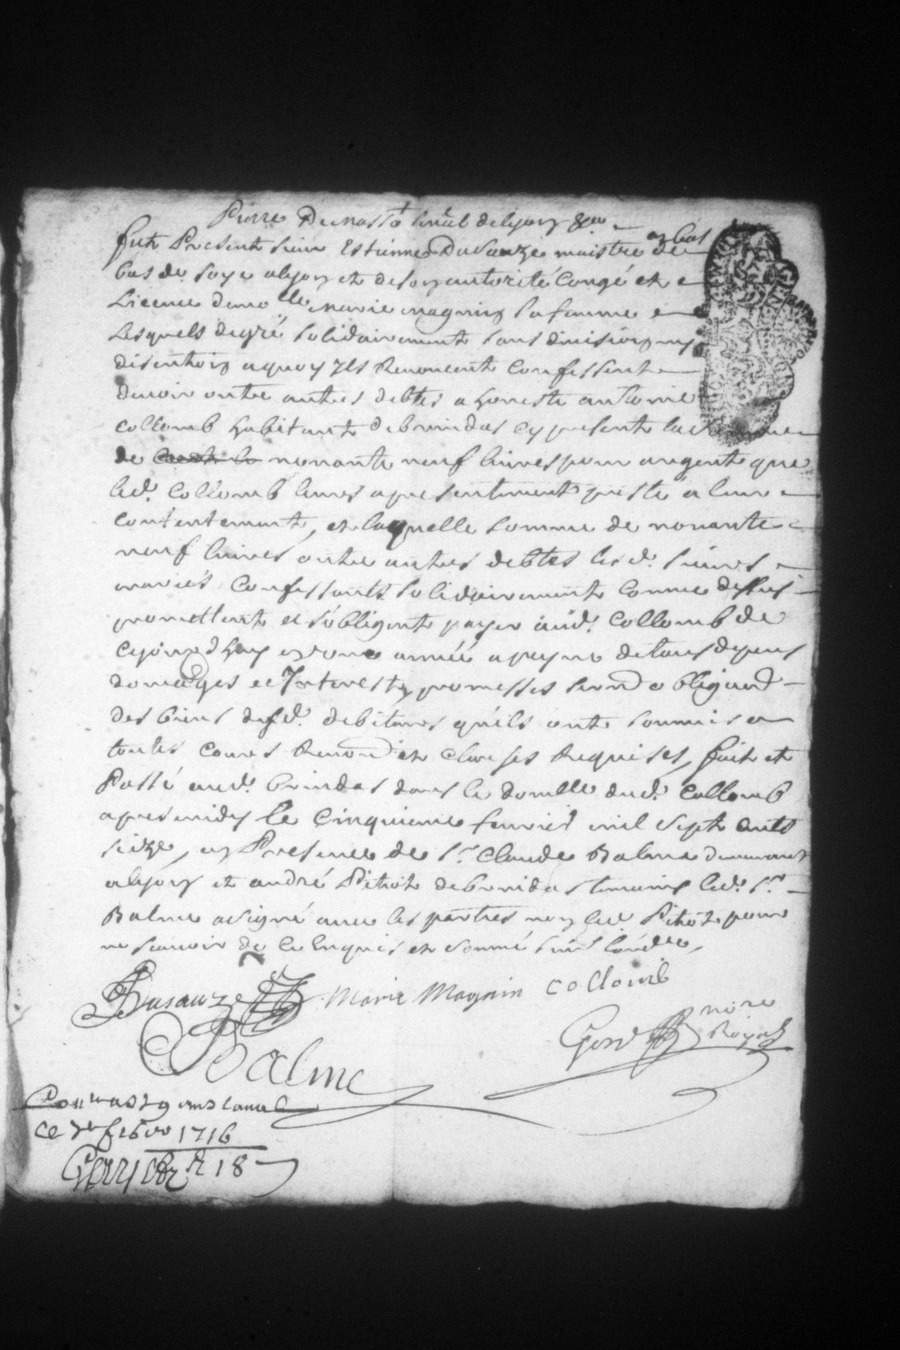 Pierre
fut Present sieur Estienne Dusauze maistre de
bas de soye a lyon et de son autorité Congé et
Licence demo.lle Marie magnin sa famme
Lesquels de gré solidairement sans division ny
disention a quoy Ils Renoncent Confessent
devoir outre autres debtes a honeste antoine
collomb habitant de brindas cy present la somme
de nonante neuf livres pour argent que
led. Collomb leurs a presentement presté a leur
contentement, et laquelle somme de nonante
neuf livres outre autres debtes lesd. sieurs
mariés Confessants solidairement comme dessus
promettent et s'obligent payer aud. Collomb de
cejourdhuy en une année a peyne de tous depens
domages et Interests, promesses obligaõn
des biens desd. debiteurs qu'ils ont soumis a
toutes cours Renonõn et clauses Requises, fait et
Passé aud. brindas dans le domille dud. Collomb
apres midy le Cinquieme fevrier mil sept cents
seize, en Presence de s.r Claude Balme demeurant
a lyon et andré Pitiot de brindas temoins led. s.r
Balme a signé avec les parties non led. Pitiot pour
ne scavoir de ce Enquis et sommé
Dusauze Marie Magnin collomb
Balme
no.re Royal
ce 7e 1716
R 18